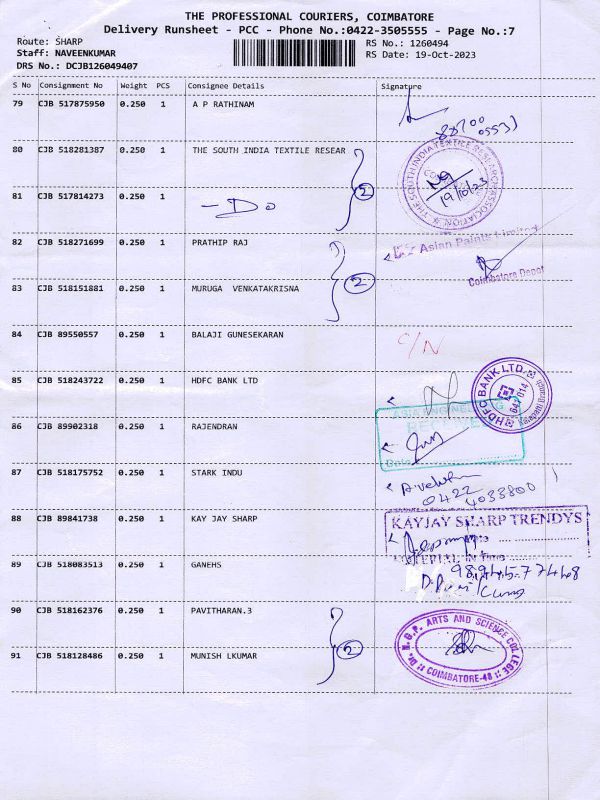 THE PROFESSIONAL COURIERS, COIMBATORE
Delivery Runsheet - PCC - Phone No.:0422-3505555 - Page No.:7
Route: SHARP
RS No.: 1260494
Staff: NAVEENKUMAR
RS Date: 19-Oct-2023
DRS No.: DCJB126049407
S No Consignment No Weight PCS Consignee Details Signature
79 CJB 517875950 0.250 1 A P RATHINAM
80 CJB 518281387 0.250 1 THE SOUTH INDIA TEXTILE RESEAR
THE SOUTH INDIA TEXTILE RESEARCH ASSOCIATION
19/10/23
81 CJB 517814273 0.250 1 - Do 2
82 CJB 518271699 0.250 1 PRATHIP RAJ
Asian Paints Limited
Coimbatore Depot
83 CJB 518151881 0.250 1 MURUGA VENKATAKRISNA 2
84 CJB 89550557 0.250 1 BALAJI GUNESEKARAN C/N
85 CJB 518243722 0.250 1 HDFC BANK LTD
HDFC BANK LTD.
86 CJB 89902318 0.250 1 RAJENDRAN
87 CJB 518175752 0.250 1 STARK INDU
0422
4033800
88 CJB 89841738 0.250 1 KAY JAY SHARP
KAYJAY SHARP TRENDYS
MATERIAL IN Time
89 CJB 518083513 0.250 1 GANEHS
9894577468
90 CJB 518162376 0.250 1 PAVITHARAN.3
Dr. N.G.P. ARTS AND SCIENCE COLLEGE
COIMBATORE-48
91 CJB 518128486 0.250 1 MUNISH LKUMAR 2